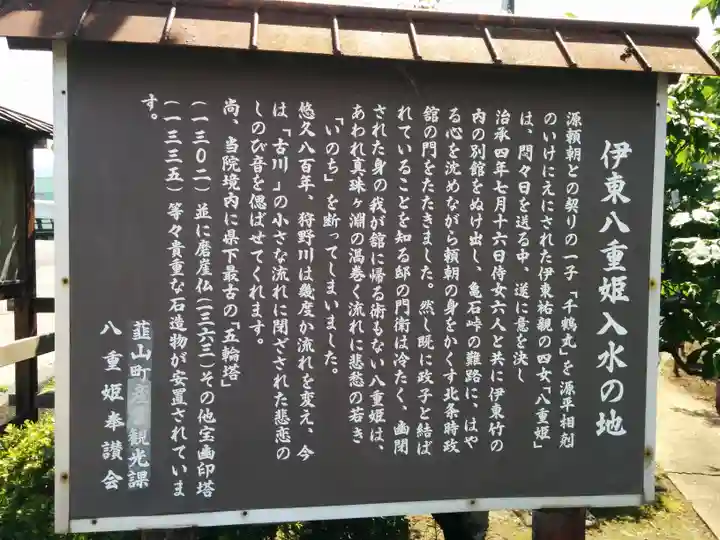 伊東八重姫入水の地
源頼朝との契りの一子「千鶴丸」を源平相剋
のいけにえにされた伊東祐親の四女「八重姫」
は、悶々日を送る中、遂に意を決し
治承四年七月十六日侍女六人と共に伊東竹の
内の別館をぬけ出し、亀石峠の難路に、はや
る心を沈めながら頼朝の身をかくす北条時政
館の門をたたきました。然し既に政子と結ば
れていることを知る邸の門衛は冷たく、幽閉
された身の我が館に帰る術もない八重姫は、
あわれ真珠ヶ淵の渦巻く流れに悲愁の若き
「いのち」を断ってしまいました。
悠久八百年、狩野川は幾度か流れを変え、今
は、「古川」の小さな流れに閉ざされた悲恋の
しのび音を偲ばせてくれます。
尚、当院境内に県下最古の「五輪塔」
(一三〇二)並に磨崖仏(一三六三)その他宝匧印塔
(一三三五)等々貴重な石造物が安置されていま
す。
韮山町 観光課
八重姫奉讃会